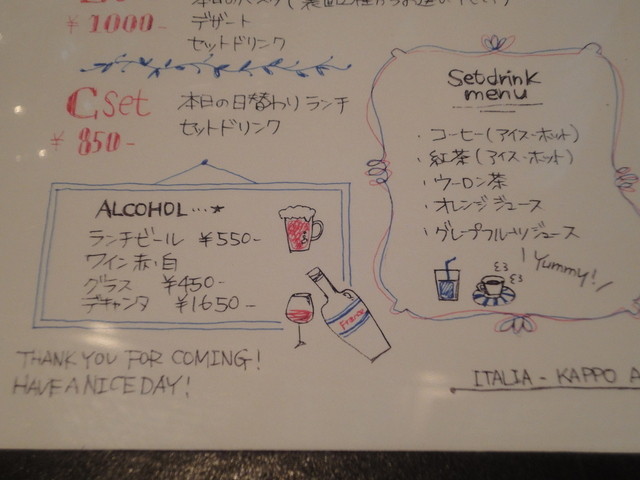 ¥1000-
デザート
セットドリンク
C set
本日の日替わりランチ
¥850-
セットドリンク
ALCOHOL...★
ランチビール ¥550-
ワイン 赤・白
グラス ¥450-
デキャンタ ¥1650-
France
THANK YOU FOR COMING!
HAVE A NICE DAY!
Set drink
menu
・コーヒー(アイス・ホット)
・紅茶(アイス・ホット)
・ウーロン茶
・オレンジジュース
・グレープフルーツジュース
Yummy!
ITALIA - KAPPO